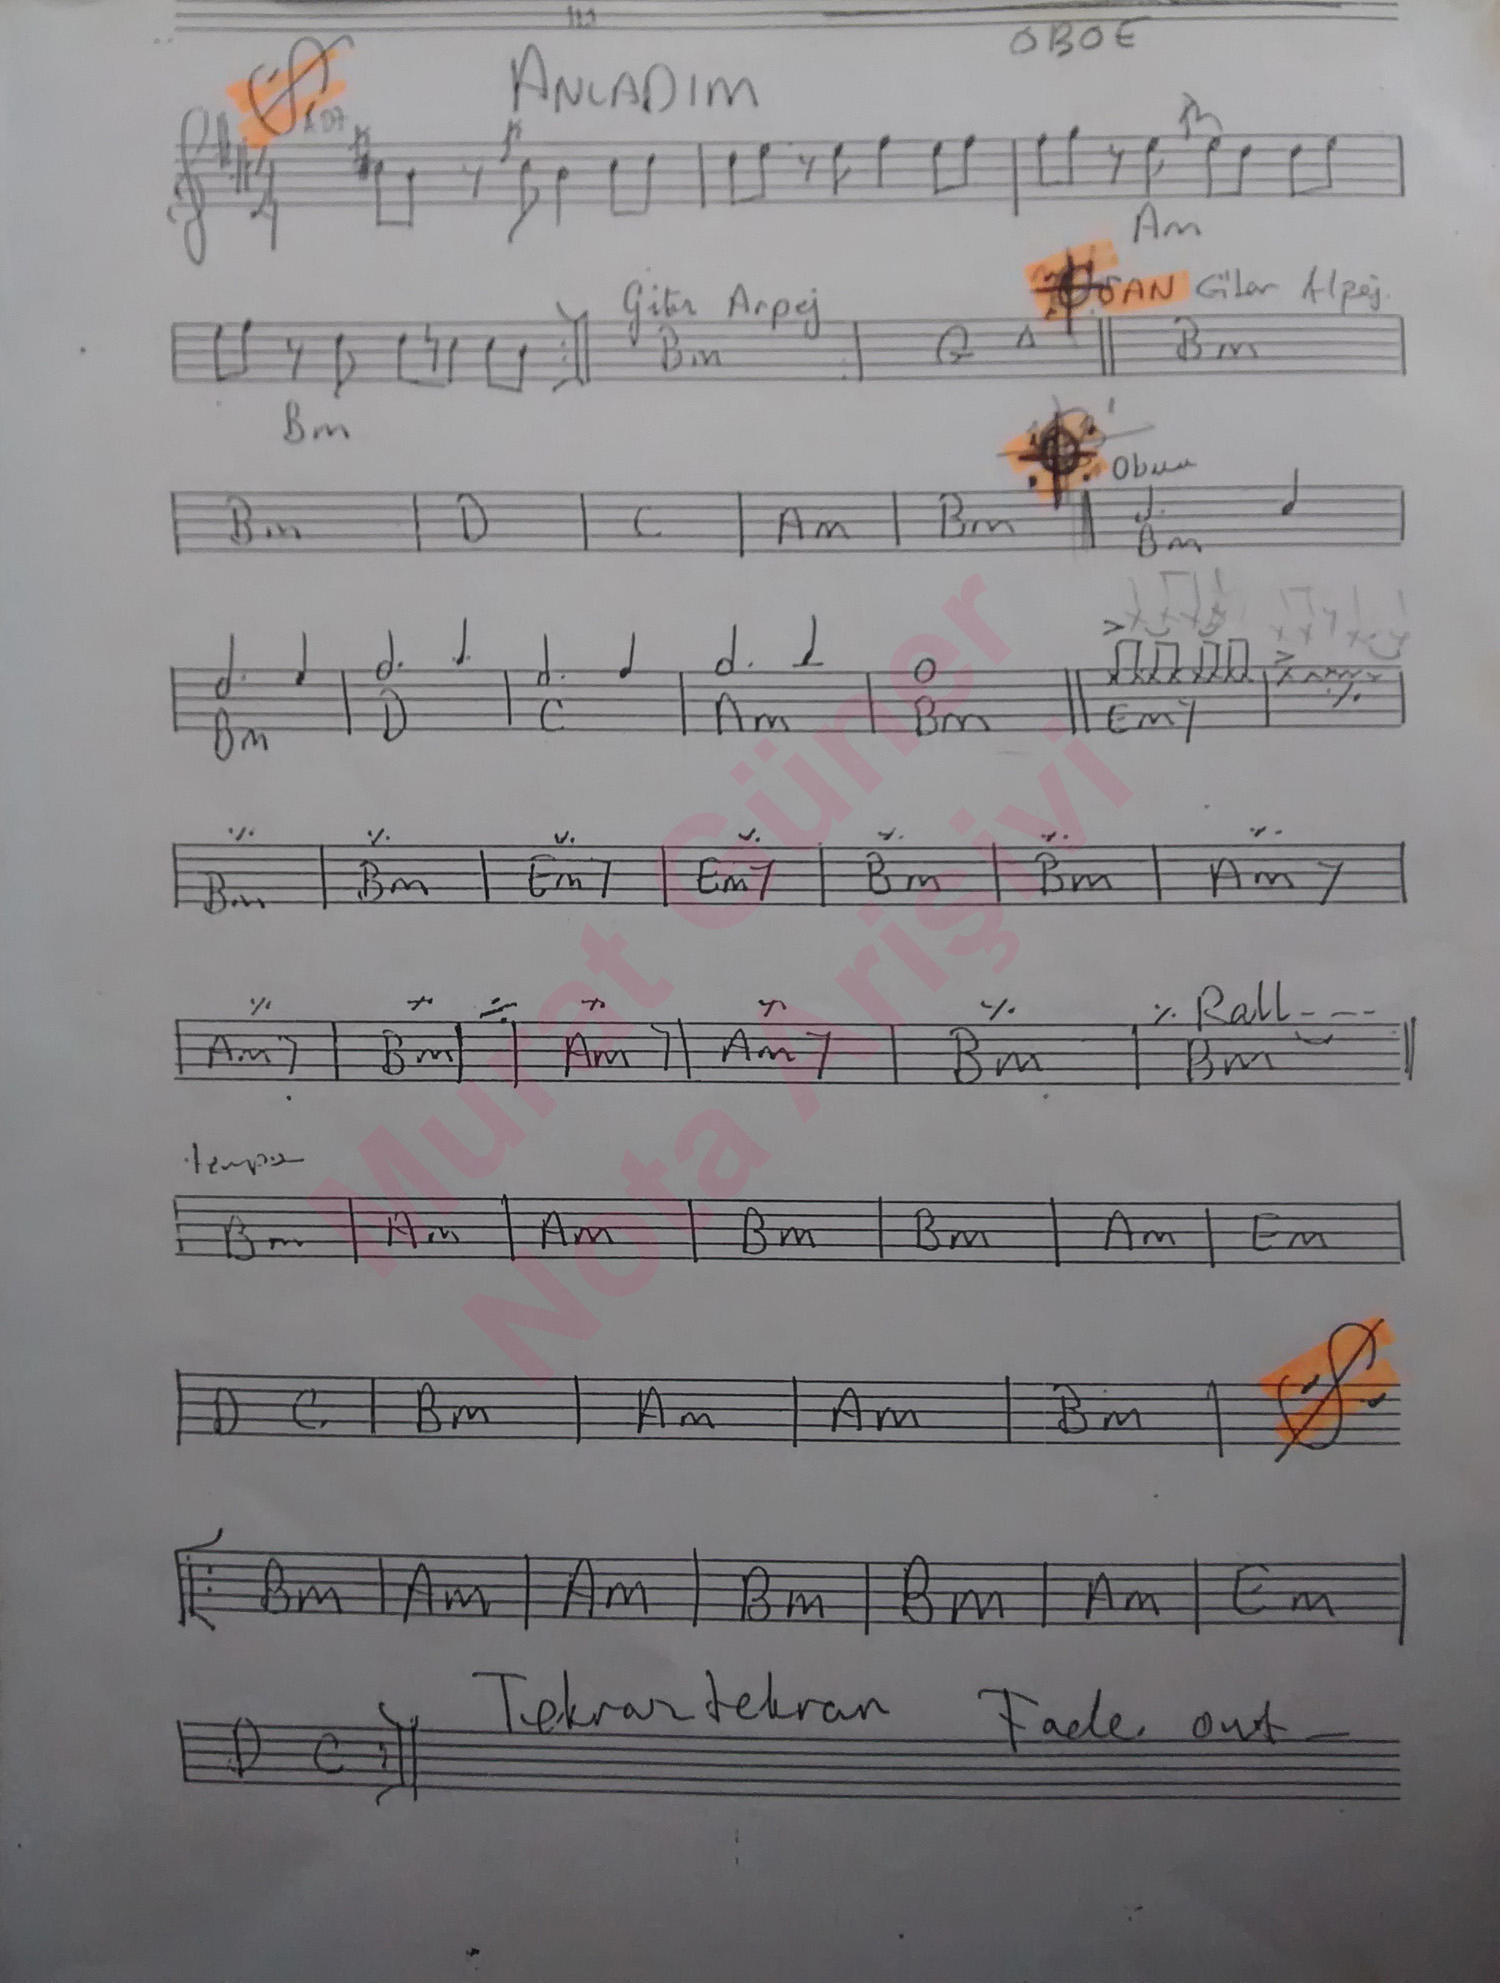 OBOE
ANLADIM
Am
Gitar Arpej
ŞAN Gitar Alpej.
Bm G A Bm
Bm
Obua
Bm D C Am Bm Bm
Bm D C Am Bm Em7 ٪
٪ ٪ ٪ ٪ ٪ ٪ ٪
Bm Bm Em7 Em7 Bm Bm Am7
٪ ٪ ٪ ٪ ٪ ٪ ٪ Rall----
Am7 Bm Am7 Am7 Bm Bm
tempo
Bm Am Am Bm Bm Am Em
D C Bm Am Am Bm
Bm Am Am Bm Bm Am Em
Tekrar tekrar Fade out
D C
Murat Güner
Nota Arişivi